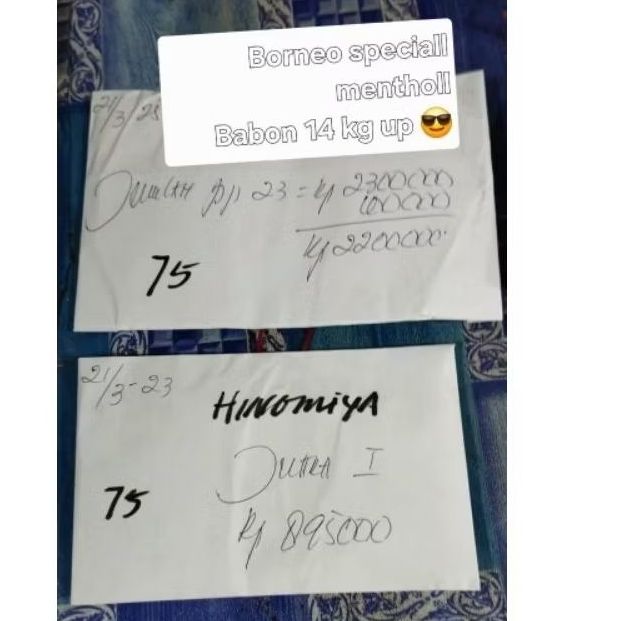 Borneo speciall
mentholl
Babon 14 kg up 😎
21/3/23
Jumlah 23 = Rp 2300000
100000
Rp 2200000
75
21/3-23
HINOMIYA
Juara I
75
Rp 895000